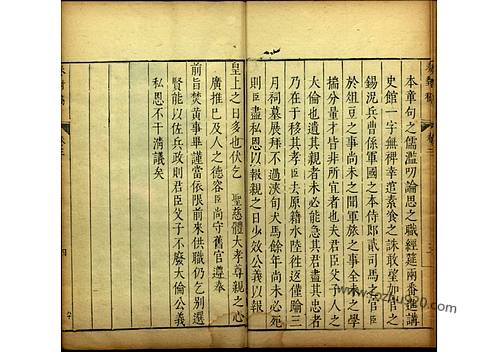 本章句之儒濫叨論思之職經筵兩番進講
史館一字無裨幸逭素餐之誅敢望卽官之
錫況兵曹係軍國之本侍郎貳司馬之官臣
於俎豆之事尚未之聞軍旅之事全未之學
揣分量才皆非所宜者也夫君臣父子人之
大倫也遺其親者未必能急其君盡其忠者
乃在于移其孝臣去原籍水陸徃返僅踰三
月祠墓展拜不過浹旬犬馬餘年尚未必死
則臣盡私恩以報親之日少效公義以報
皇上之日多也伏乞 聖慈體大孝尊親之心
廣推巳及人之德容臣尚守舊官遵奉
前旨焚黃事畢謹當依限前來供職仍乞別選
賢能以佐兵政則君臣父子不廢大倫公義
私恩不干清議矣
四